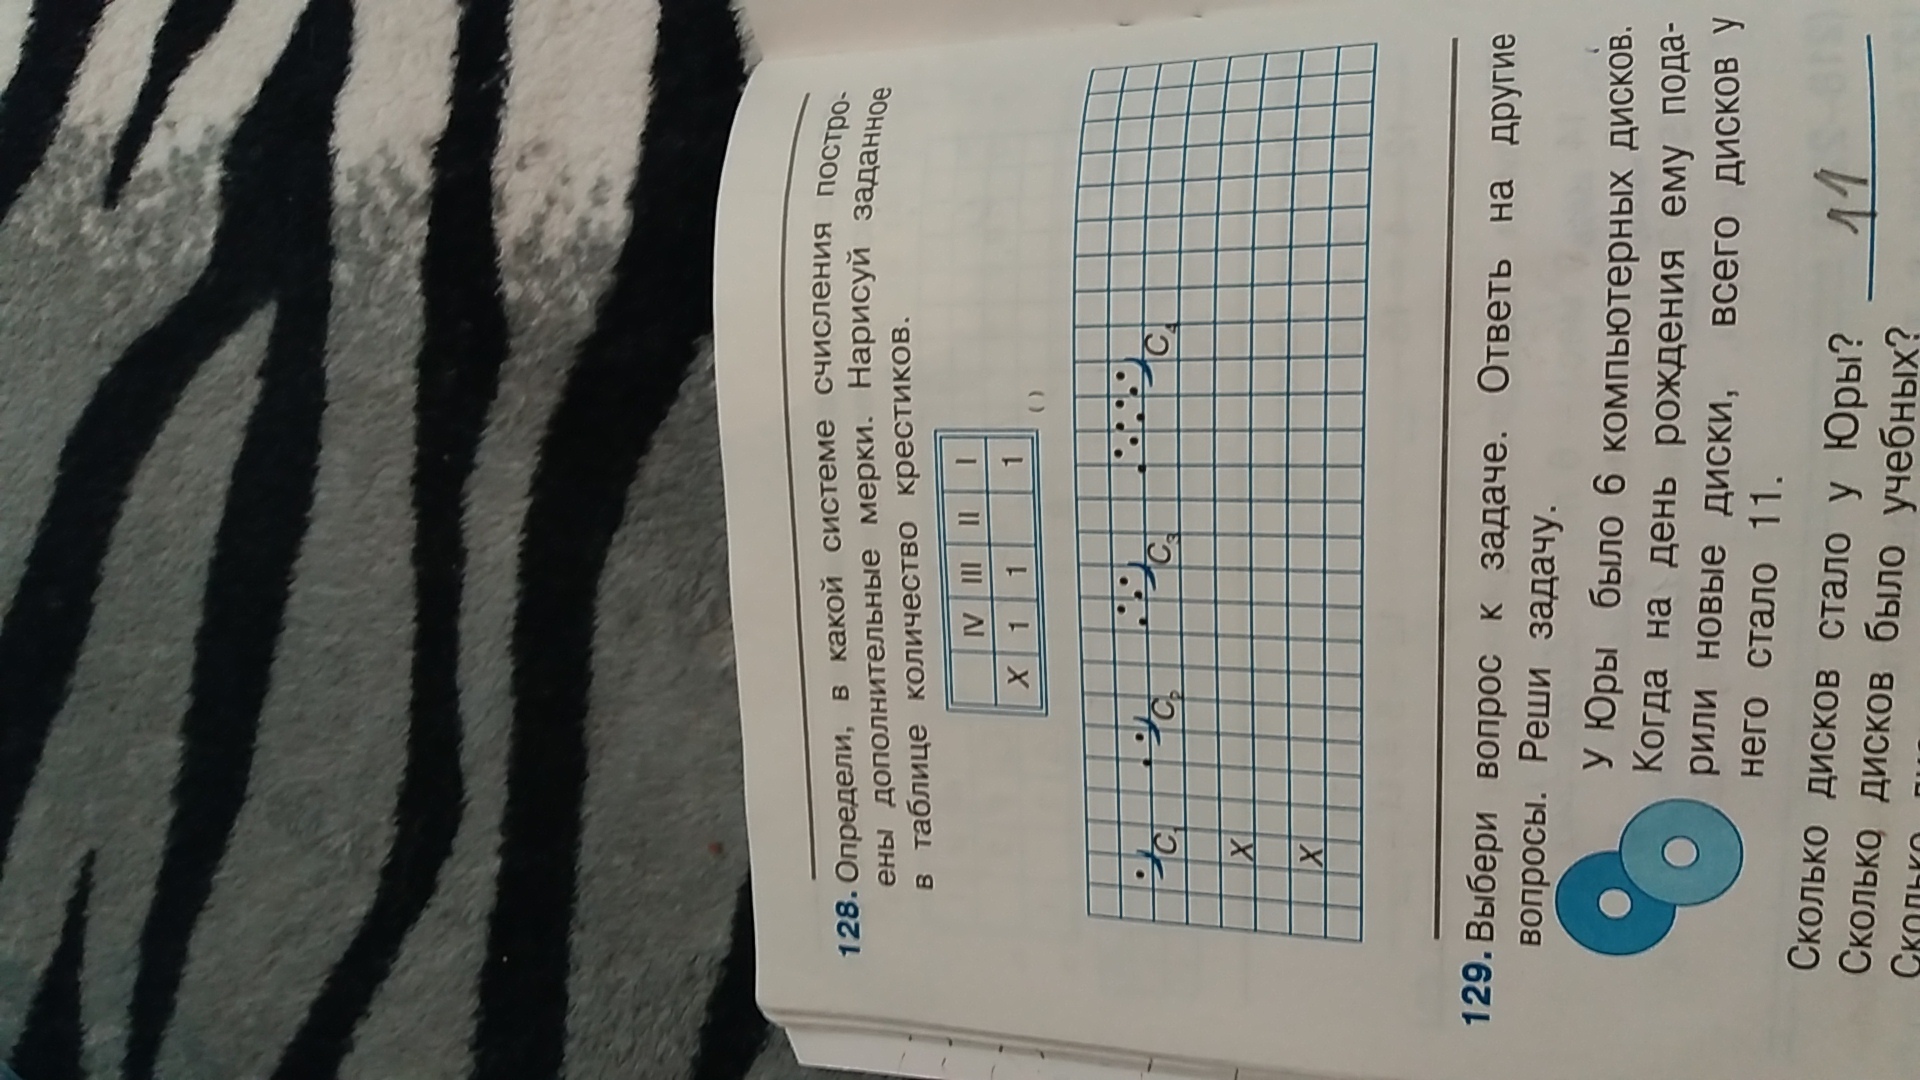 128. Определи, в какой системе счисления постро-
ены дополнительные мерки. Нарисуй заданное
в таблице количество крестиков.
IV III II I
X 1 1 1
( )
C₁ C₂ C₃ C₄
X
X
129. Выбери вопрос к задаче. Ответь на другие
вопросы. Реши задачу.
У Юры было 6 компьютерных дисков.
Когда на день рождения ему пода-
рили новые диски, всего дисков у
него стало 11.
Сколько дисков стало у Юры? 11
Сколько дисков было учебных?
Сколько